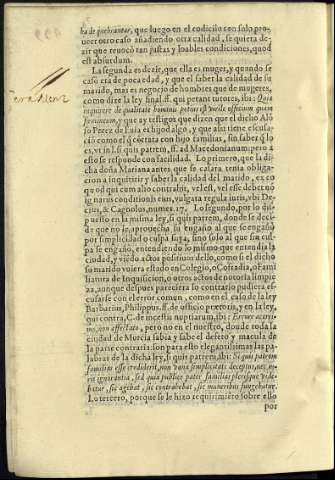 ha de quebrantar, que luego en el codicilo con solo pro-
ueer otro caso añadiendo otra calidad, se quiera de-
zir que reuocò tan justas y loables condiciones, quod
est absurdum.
La segunda es dezir, que ella es muger, y quando se
caso era de poca edad, y que el saber la calidad de su
marido, mas es negocio de hombres que de mugeres,
como dize la ley final. ff. qui petant tutores, ibi: Quia
inquirere de qualitate hominis potius est viri officium quàm
y que ay testigos que dizen que el dicho Alõ
so Perez de es hijodalgo, y que assi tiene escusa-
ciõ como el q̃ cõtrata con hijo familias, sin saber q̃ lo
es, vt in l. si quis patrem, ff. ad Macedonianum: pero a
esto se responde con facilidad. Lo primero, que la di-
cha doña Mariana antes que se casara tenia obliga-
cion a inquirir y saber la calidad del marido, ex eo
quod qui cum alio contrahit, vel est, vel esse debet nõ
ignarus conditionis eius, vulgata regula iuris, vbi De-
cius, & Cagnolus, numer. 17. Lo segundo, por lo dis-
puesto en la misma ley, si quis patrem, donde se deci-
de que no le aprouecha su engaño al que se engañò
por simplicidad o culpa suya, sino solo al que sin cul-
pa se engaño, entendiendo lo mismo que entendia la
ciudad, y viẽdo actos positiuos dello, como si el dicho
su marido vuiera estado en Colegio, o Cofradia, o Fami
liatura de Inquisicion, o otros actos de notoria limpie
za, aunque despues pareciera lo contrario pudiera es-
cusarse con el error comun, como en el caso de la ley
Barbarius, Philippus. ff. de officio prætoris, y en la ley,
qui contra, C. de incestis nuptiis, ibi: Errore acerri-
mo, non affectato, pero no en el nuestro, donde toda la
ciudad de Murcia sabia y sabe el defeto y macula de
la parte contraria: son para esto elegantissimas las pa-
labras de la dicha ley, si quis patrem, ibi: Si quis patrem
familias esse crediderit, non vana simplicitate deceptus, nec iu-
ris ignorantia, sed quia publicè pater familias plerisque vide-
batur, sic agebat, sic contrahebat, sic muneribus fungebatur.
Lo tercero, porque se le hizo requirimiẽto sobre ello
por